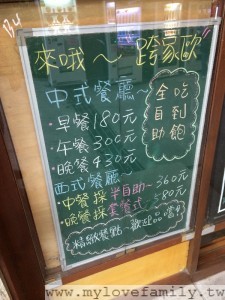 來哦～跨家歐
中式餐廳～
早餐180元
午餐300元
晚餐430元
全自助
吃到飽
西式餐廳～
中餐採半自助～360元
晚餐採套餐式～580元
精緻餐點 歡迎品嚐!!
www.mylovefamily.tw